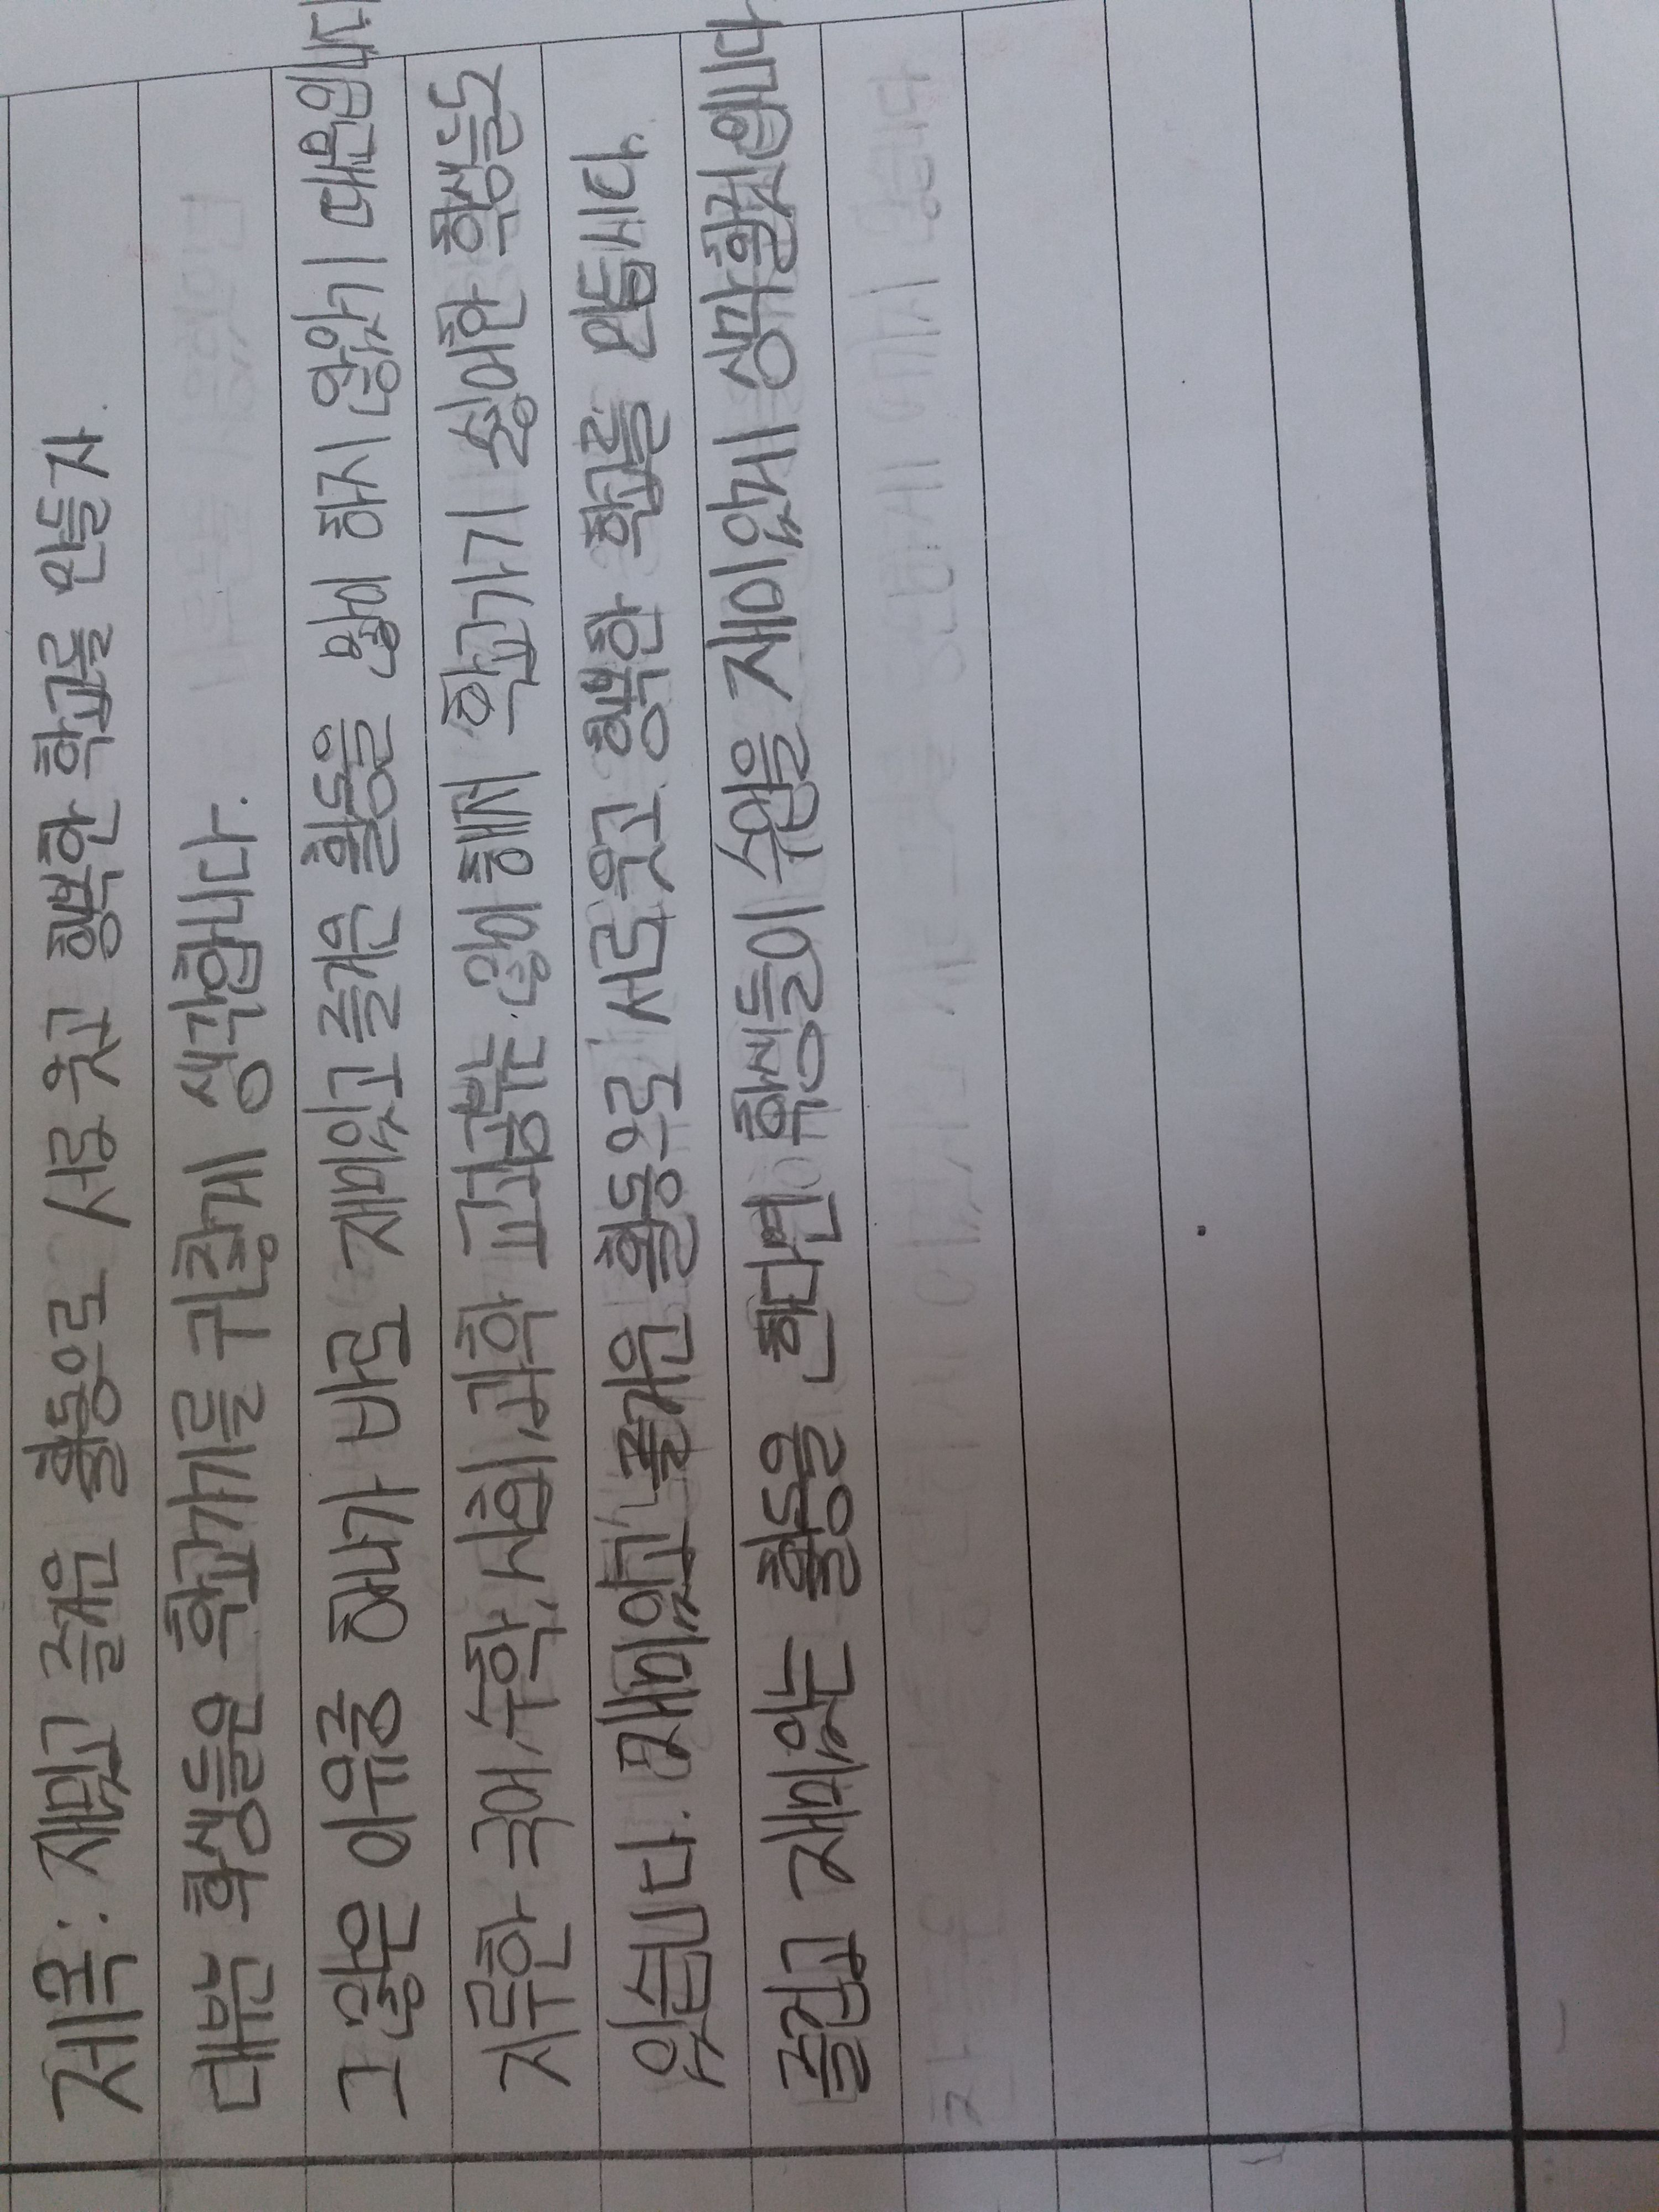 제목: 재밌고 즐거운 활동으로 서로 웃고 행복한 학교를 만들자
대부분 학생들은 학교가기를 귀찮게 생각합니다.
그 많은 이유중 하나가 바로 재미있고 즐거운 활동을 많이 하지 않았기 때문입니다
지루한 국어, 수학, 사회, 과학 교과공부는 많이 해서 학교가기 싫어한 학생들도
있습니다. 재미있고 즐거운 활동으로 서로 웃고 행복한 학교를 만듭시다.
즐겁고 재미있는 활동을 한다면 학생들이 수업을 재미있게 생각할것입니다